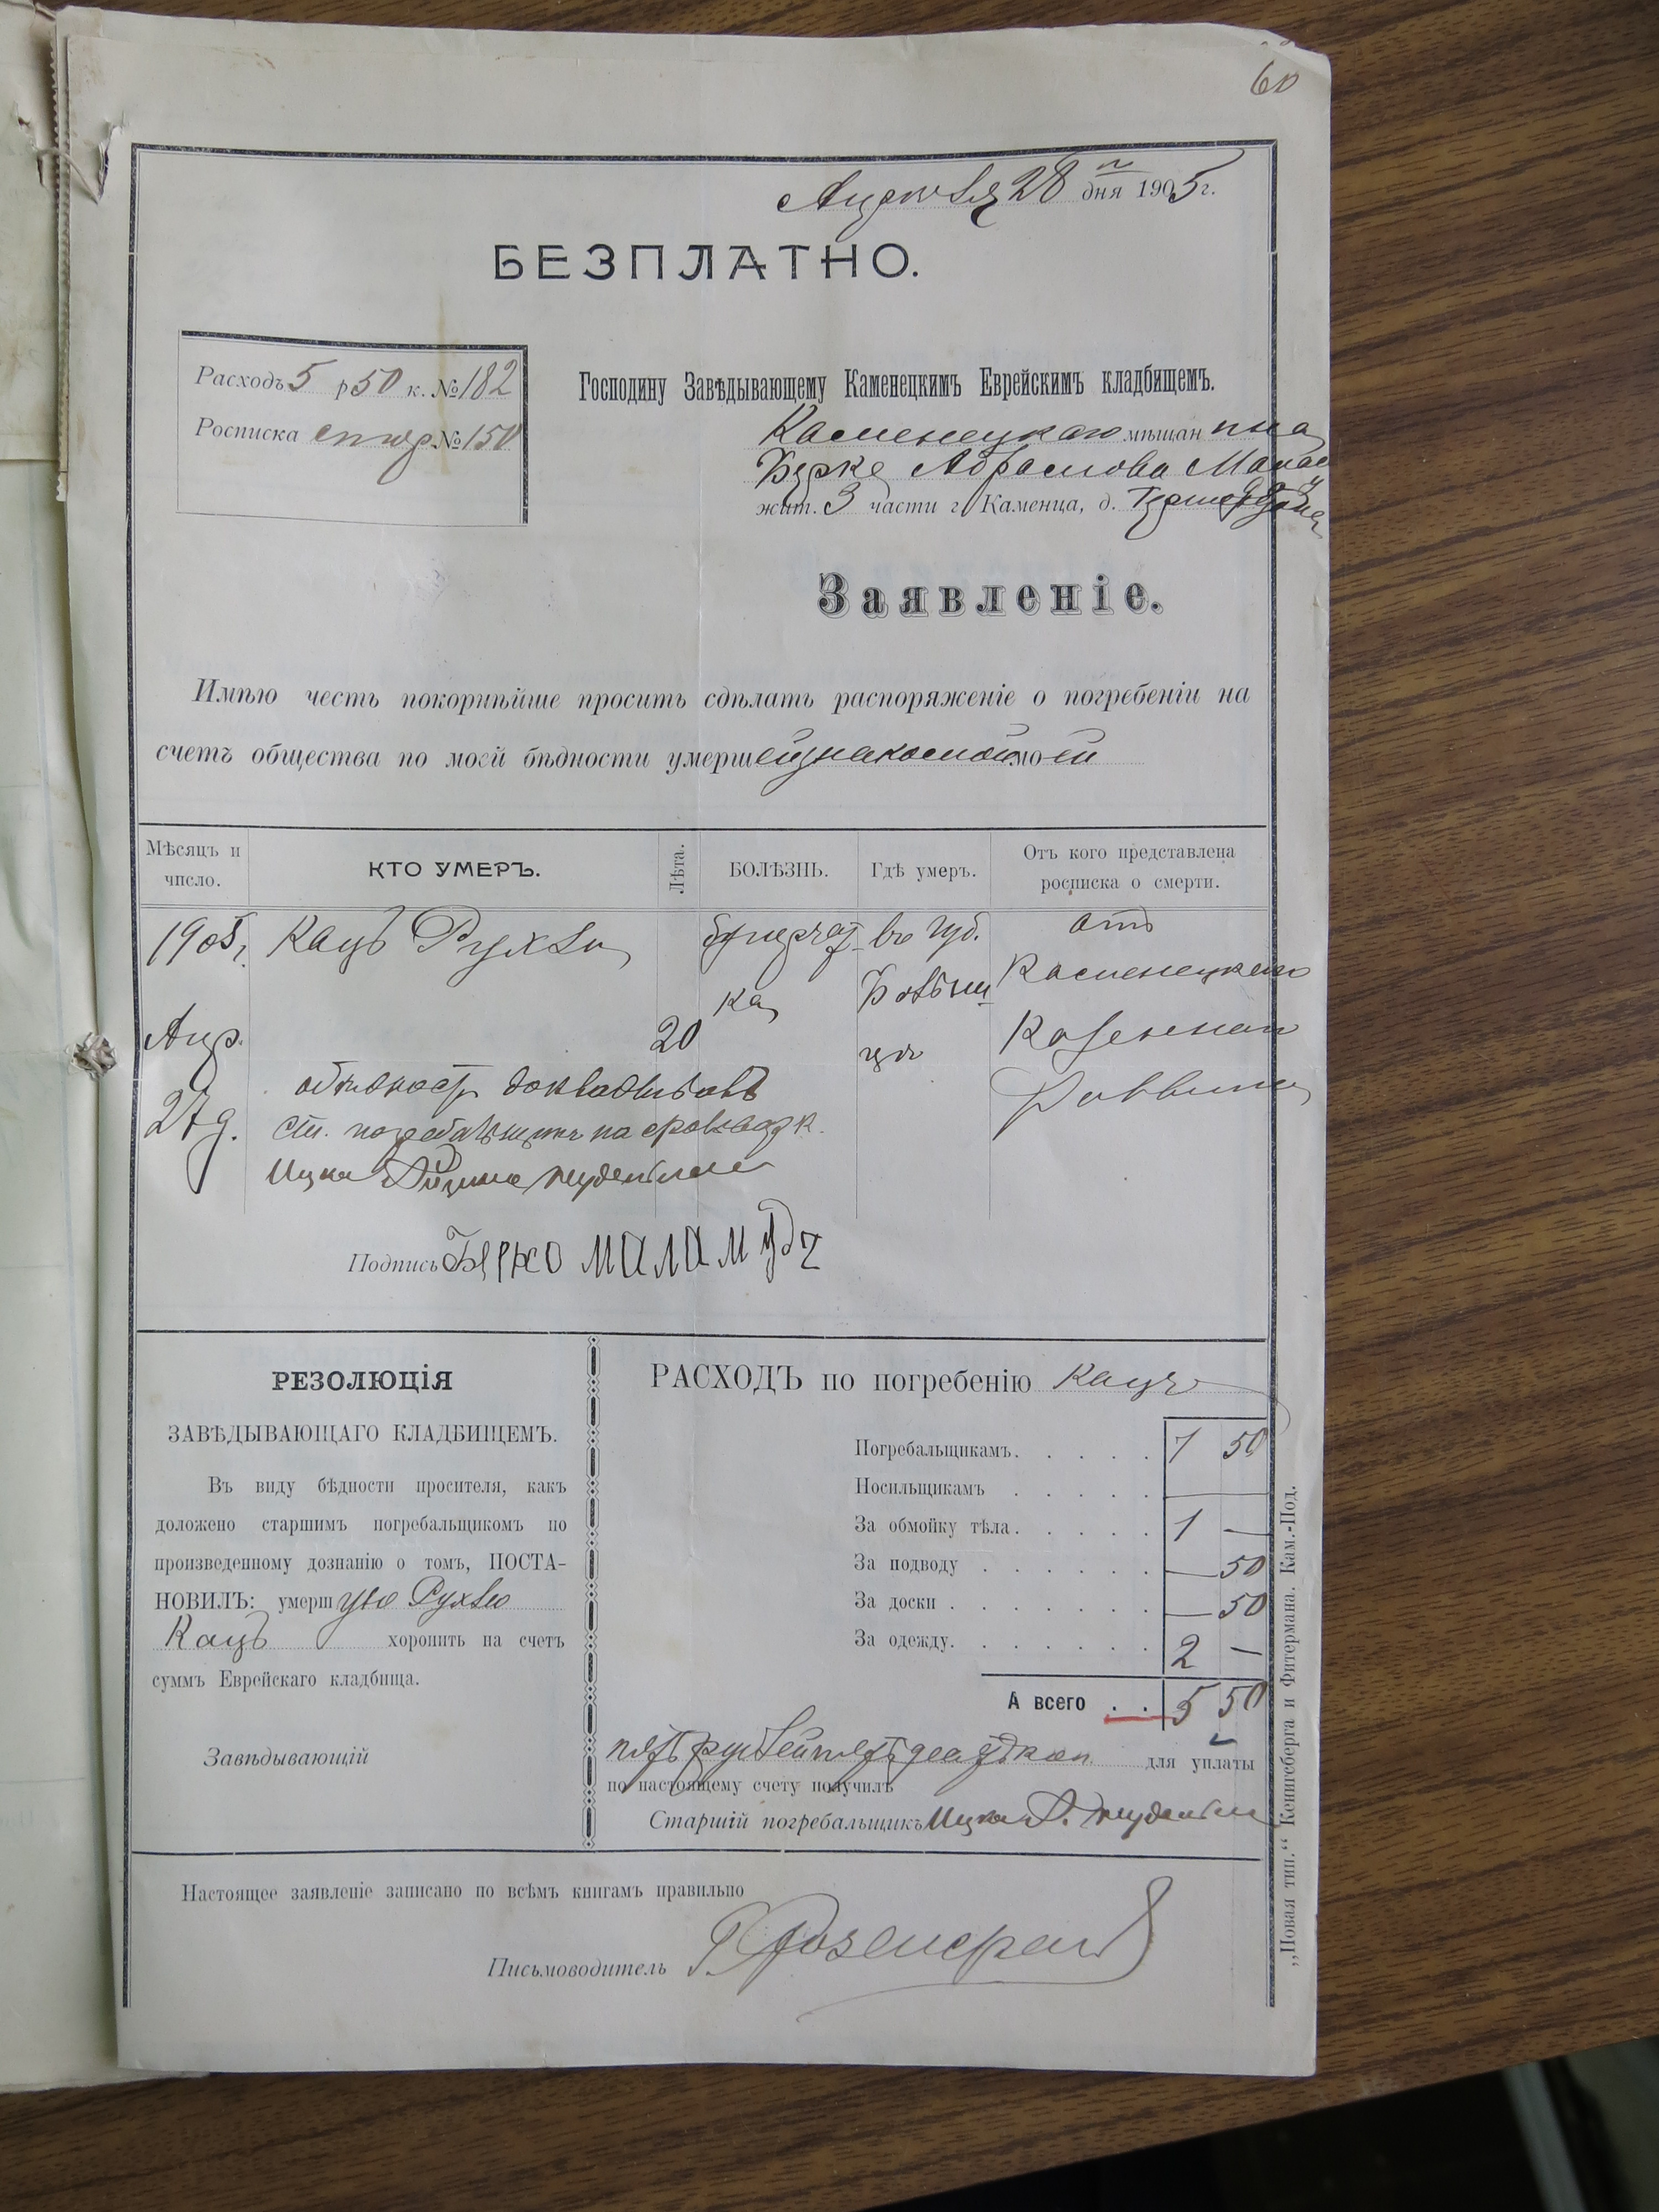 60
Апреля 28 дня 1905 г.
БЕЗПЛАТНО.
Расходъ 5 р 50 к. № 182
Росписка № 150
Господину Завѣдывающему Каменецкимъ Еврейскимъ кладбищемъ.
Каменецкаго мѣщан
Берка Абрамова
жит. 3 части г. Каменца, д.
Заявленіе.
Имѣю честь покорнѣйше просить сдѣлать распоряженіе о погребеніи на
счетъ общества по моей бѣдности умершей знакомой моей
Мѣсяцъ и число.
КТО УМЕРЪ.
Лѣта.
БОЛѢЗНЬ.
Гдѣ умеръ.
Отъ кого представлена росписка о смерти.
1905 г. Кацъ Рухля въ губ. отъ
Каменецкаго
Апр. 20 Казеннаго
27 д. Раввина
Подпись Берко Маламудъ
РЕЗОЛЮЦІЯ
ЗАВѢДЫВАЮЩАГО КЛАДБИЩЕМЪ.
Въ виду бѣдности просителя, какъ
доложено старшимъ погребальщикомъ по
произведенному дознанію о томъ, ПОСТА-
НОВИЛЪ: умершую Рухлю
Кацъ хоронить на счетъ
суммъ Еврейскаго кладбища.
Завѣдывающій
РАСХОДЪ по погребенію Кацъ
Погребальщикамъ. . . . . 1 50
Носильщикамъ . . . . . —
За обмойку тѣла. . . . . 1 —
За подводу . . . . . . — 50
За доски . . . . . . . — 50
За одежду. . . . . . . 2 —
А всего . . 5 50
пять рублей пятьдесятъ коп. для уплаты
по настоящему счету получилъ
Старшій погребальщикъ Ицко
Настоящее заявленіе записано по всѣмъ книгамъ правильно
Письмоводитель
„Новая тип.“ Кенигсберга и Фитермана. Кам.-Под.